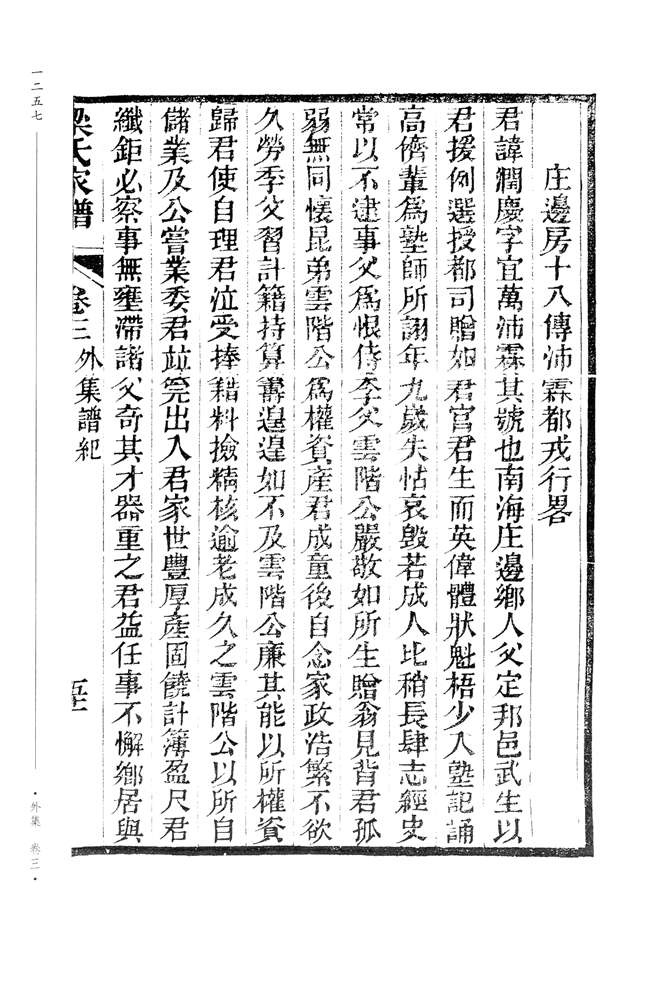 庄邊房十八傳沛霖都戎行畧
君諱潤慶字宜萬沛霖其號也南海庄邊鄉人父定邦邑武生以
君援例選授都司贈如君官君生而英偉體狀魁梧少入塾記誦
高儕輩爲塾師所詡年九歲失怙哀毀若成人比稍長肆志經史
常以不逮事父爲恨侍季父雲階公嚴敬如所生贈翁見背君孤
弱無同懷昆弟雲階公爲權資產君成童後自念家政浩繁不欲
久勞季父習計籍持算籌遑遑如不及雲階公廉其能以所權資
歸君使自理君泣受捧籍料撿精核逾老成久之雲階公以所自
儲業及公嘗業委君並筦出入君家世豐厚產固饒計簿盈尺君
纖鉅必察事無壅滯諸父奇其才器重之君益任事不懈鄉居與
梁氏家譜 卷三 外集譜紀
一二五七
·外集 卷三·